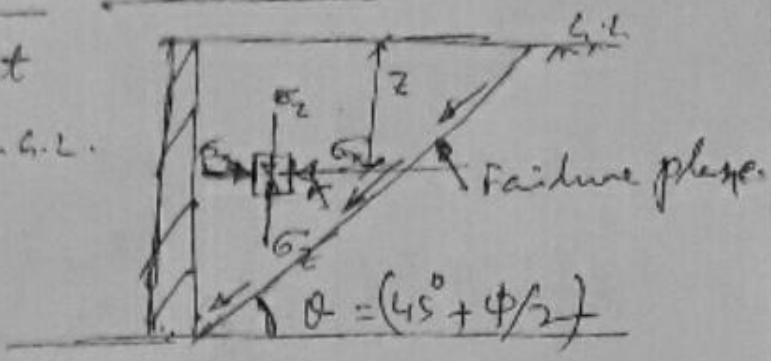 t
G.L.
σz
z
. G.L.
σx
σx
A
Failure plane.
σz
θ = (45° + φ/2)